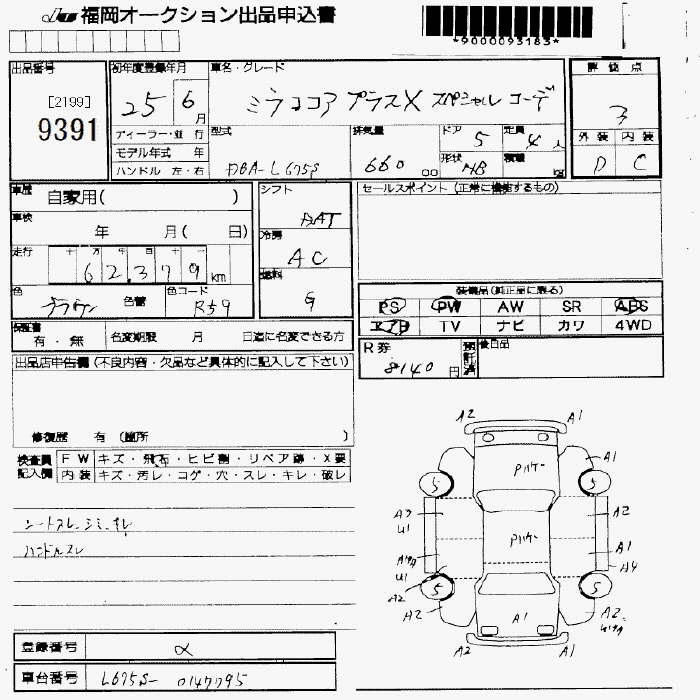 JU 福岡オークション出品申込書
*9000093183*
出品番号 [2199] 9391
初年度登録年月 25 6月
車名・グレード ミラココア プラスX スペシャルコーデ
評価点 3
外装 D 内装 C
ディーラー・並行
モデル年式 年
ハンドル 左・右
型式 DBA-L675S
排気量 660 CC
ドア 5
定員 4人
形状 HB
積載 kg
車歴 自家用( )
車検 年 月( 日)
走行 十 万 千 百 十 一 62379km
色 ブラウン 色替 色コード R59
シフト DAT
冷房 AC
燃料 G
セールスポイント (正常に機能するもの)
装備品(純正品に限る)
PS PW AW SR ABS
エアB TV ナビ カワ 4WD
保証書 有・無 名変期限 月 日迄に名変できる方
R券 8140円 預託済
後日品
出品店申告欄 (不良内容・欠品など具体的に記入して下さい)
修復歴 有 (箇所 )
検査員記入欄
FW キズ・飛石・ヒビ割・リペア跡・X要
内装 キズ・汚レ・コゲ・穴・スレ・キレ・破レ
シートスレ シミ キレ
ハンドルスレ
A2 A1
Pハケー A1
5 5
A3 U1 A2
Pハケー A1
U1 A4
A2
5 5
A2 A1 A2
A2 A1
登録番号
車台番号 L675S- 0147795